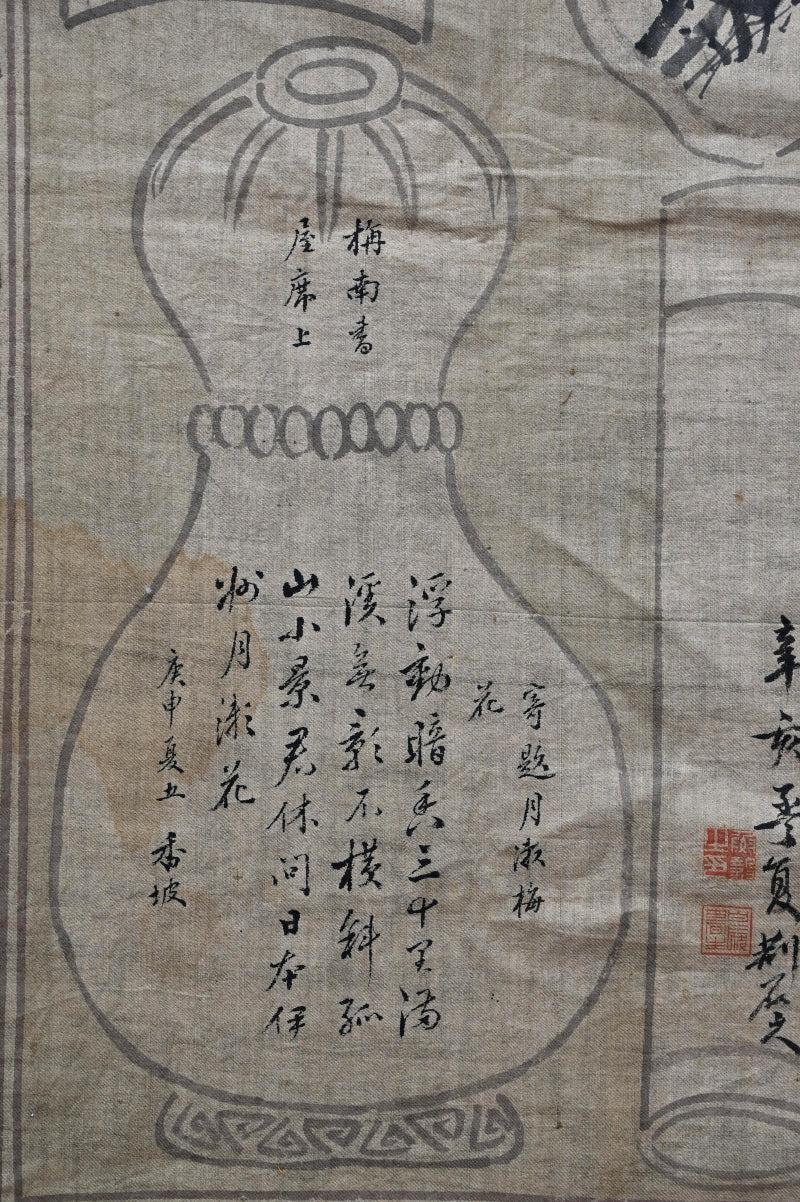 辛亥季夏
梅南書
屋席上
寄題月瀬梅
花
浮動暗香三十里満
渓無影不横斜孤
山小景君休問日本伊
州月瀬花
庚申夏五 香坡